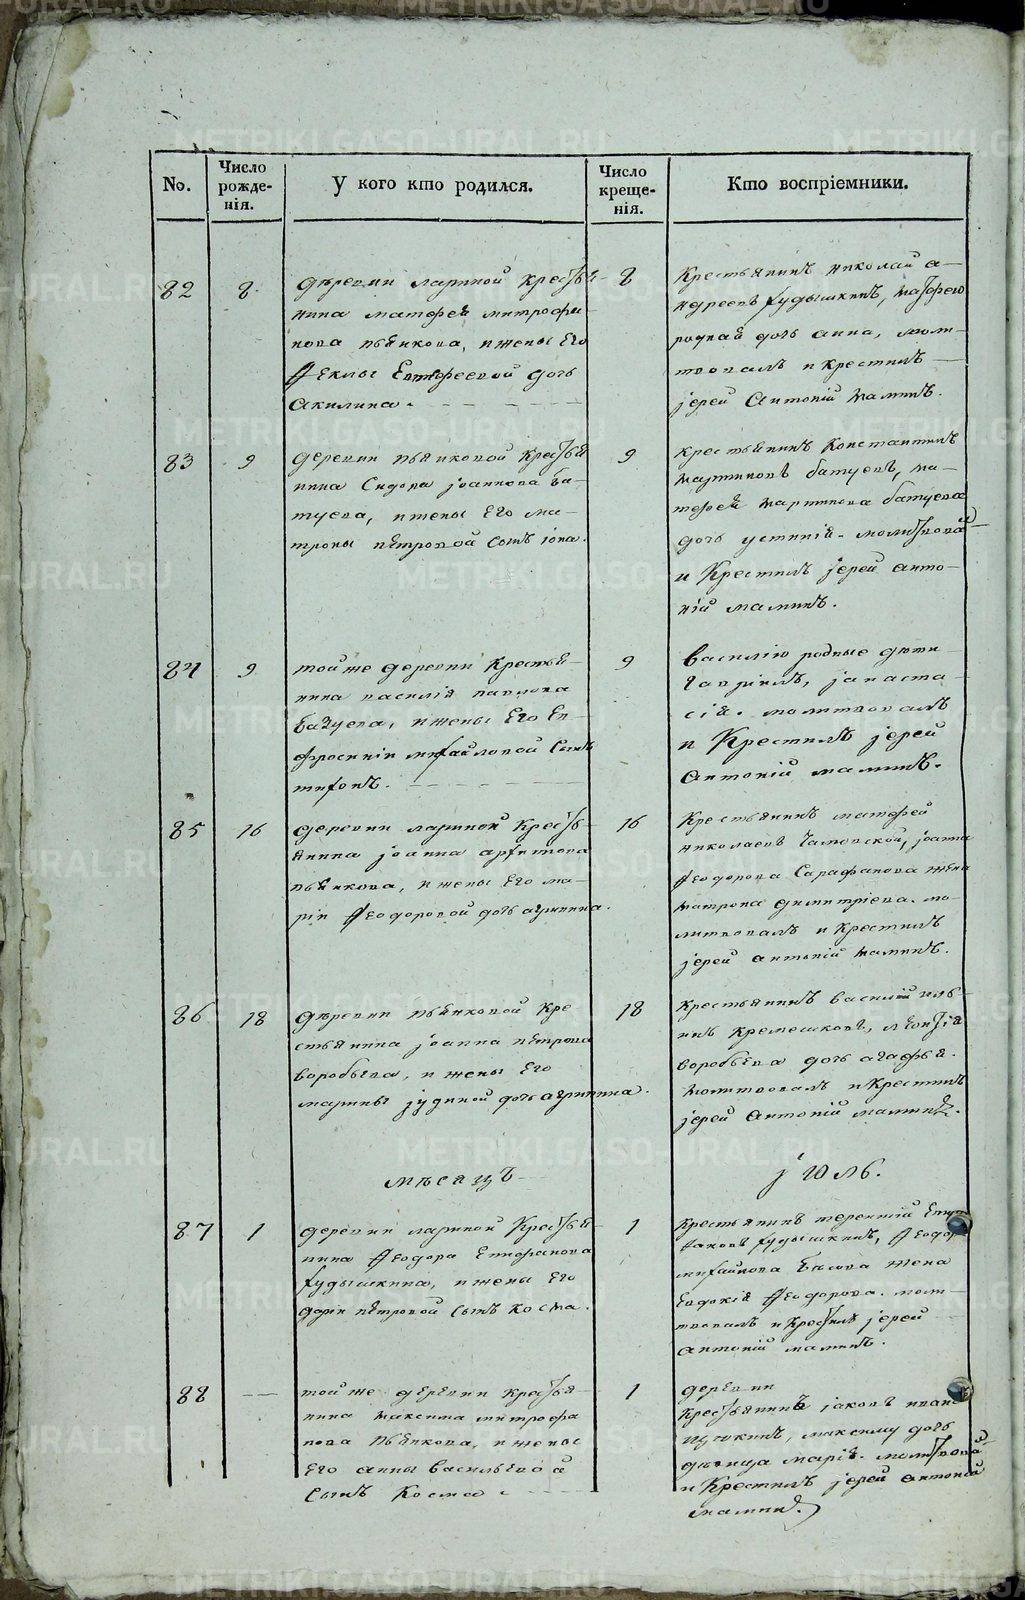 No.
Число рожде-нія.
У кого кто родился.
Число креще-нія.
Кто воспріемники.
82
8
деревни лариной крестья-
нина матфея митрофа-
нова пьянкова, и жены его
Феклы Евтифеевой дочь
акилина.
8
Крестьянинъ николай а-
ндреевъ худышкинъ, матфею
родная дочь анна, моли-
твовалъ и крестилъ
іерей Антоній маминъ.
83
9
деревни пьянковой крестья
нина Сидора іоаннова ба-
туева, и жены Его ма-
троны петровой сынъ іона.
9
крестьянинъ Константинъ
мартиновъ батуевъ, ма-
тфея мартинова батуева
дочь устинія. молитвовал
и Крестилъ іерей анто-
ній маминъ.
84
9
той же деревни крестья-
нина василія павлова
батуева, и жены Его Ев
фросиніи михайловой Сынъ
тихонъ.
9
василію родные дети
гавріилъ, іанаста-
сія. молитвовалъ
и Крестилъ іерей
Антоній маминъ.
85
16
деревни лариной Кресть-
янина іоанна архипова
пьянкова, и жены Его ма-
ріи Феодоровой дочь агрипина.
16
Крестьянинъ матфей
николаевъ іоанна
Феодорова Сарафанова жена
матрона димитріева. мо-
литвовалъ и крестилъ
іерей антоній маминъ.
86
18
деревни пьянковой кре-
стьянина іоанна петрова
воробьева, и жены Его
марины іудиной дочь агрипина.
18
крестьянинъ василій иль-
инъ кремешковъ, леонтія
воробьева дочь агафья.
молитвовалъ и крестилъ
іерей Антоній маминъ.
месяцъ
іюль.
87
1
деревни лариной Крестья-
нина Феодора Епифанова
худышкина, и жены Его
даріи петровой сынъ косма.
1
крестьянинъ терентій
худышкинъ, Феодора
михайлова басова жена
Евдокія Феодорова. моли-
твовалъ и крестилъ іерей
антоній маминъ.
88
той же деревни крестья-
нина максима митрофа
нова Пьянкова, и жены
Его анны васильевой
сынъ Косма.
1
деревни
крестьянинъ іаковъ ивано
максиму дочь
девица марія. молитвовал
и Крестилъ іерей антоній
маминъ.
METRIKI.GASO-URAL.RU